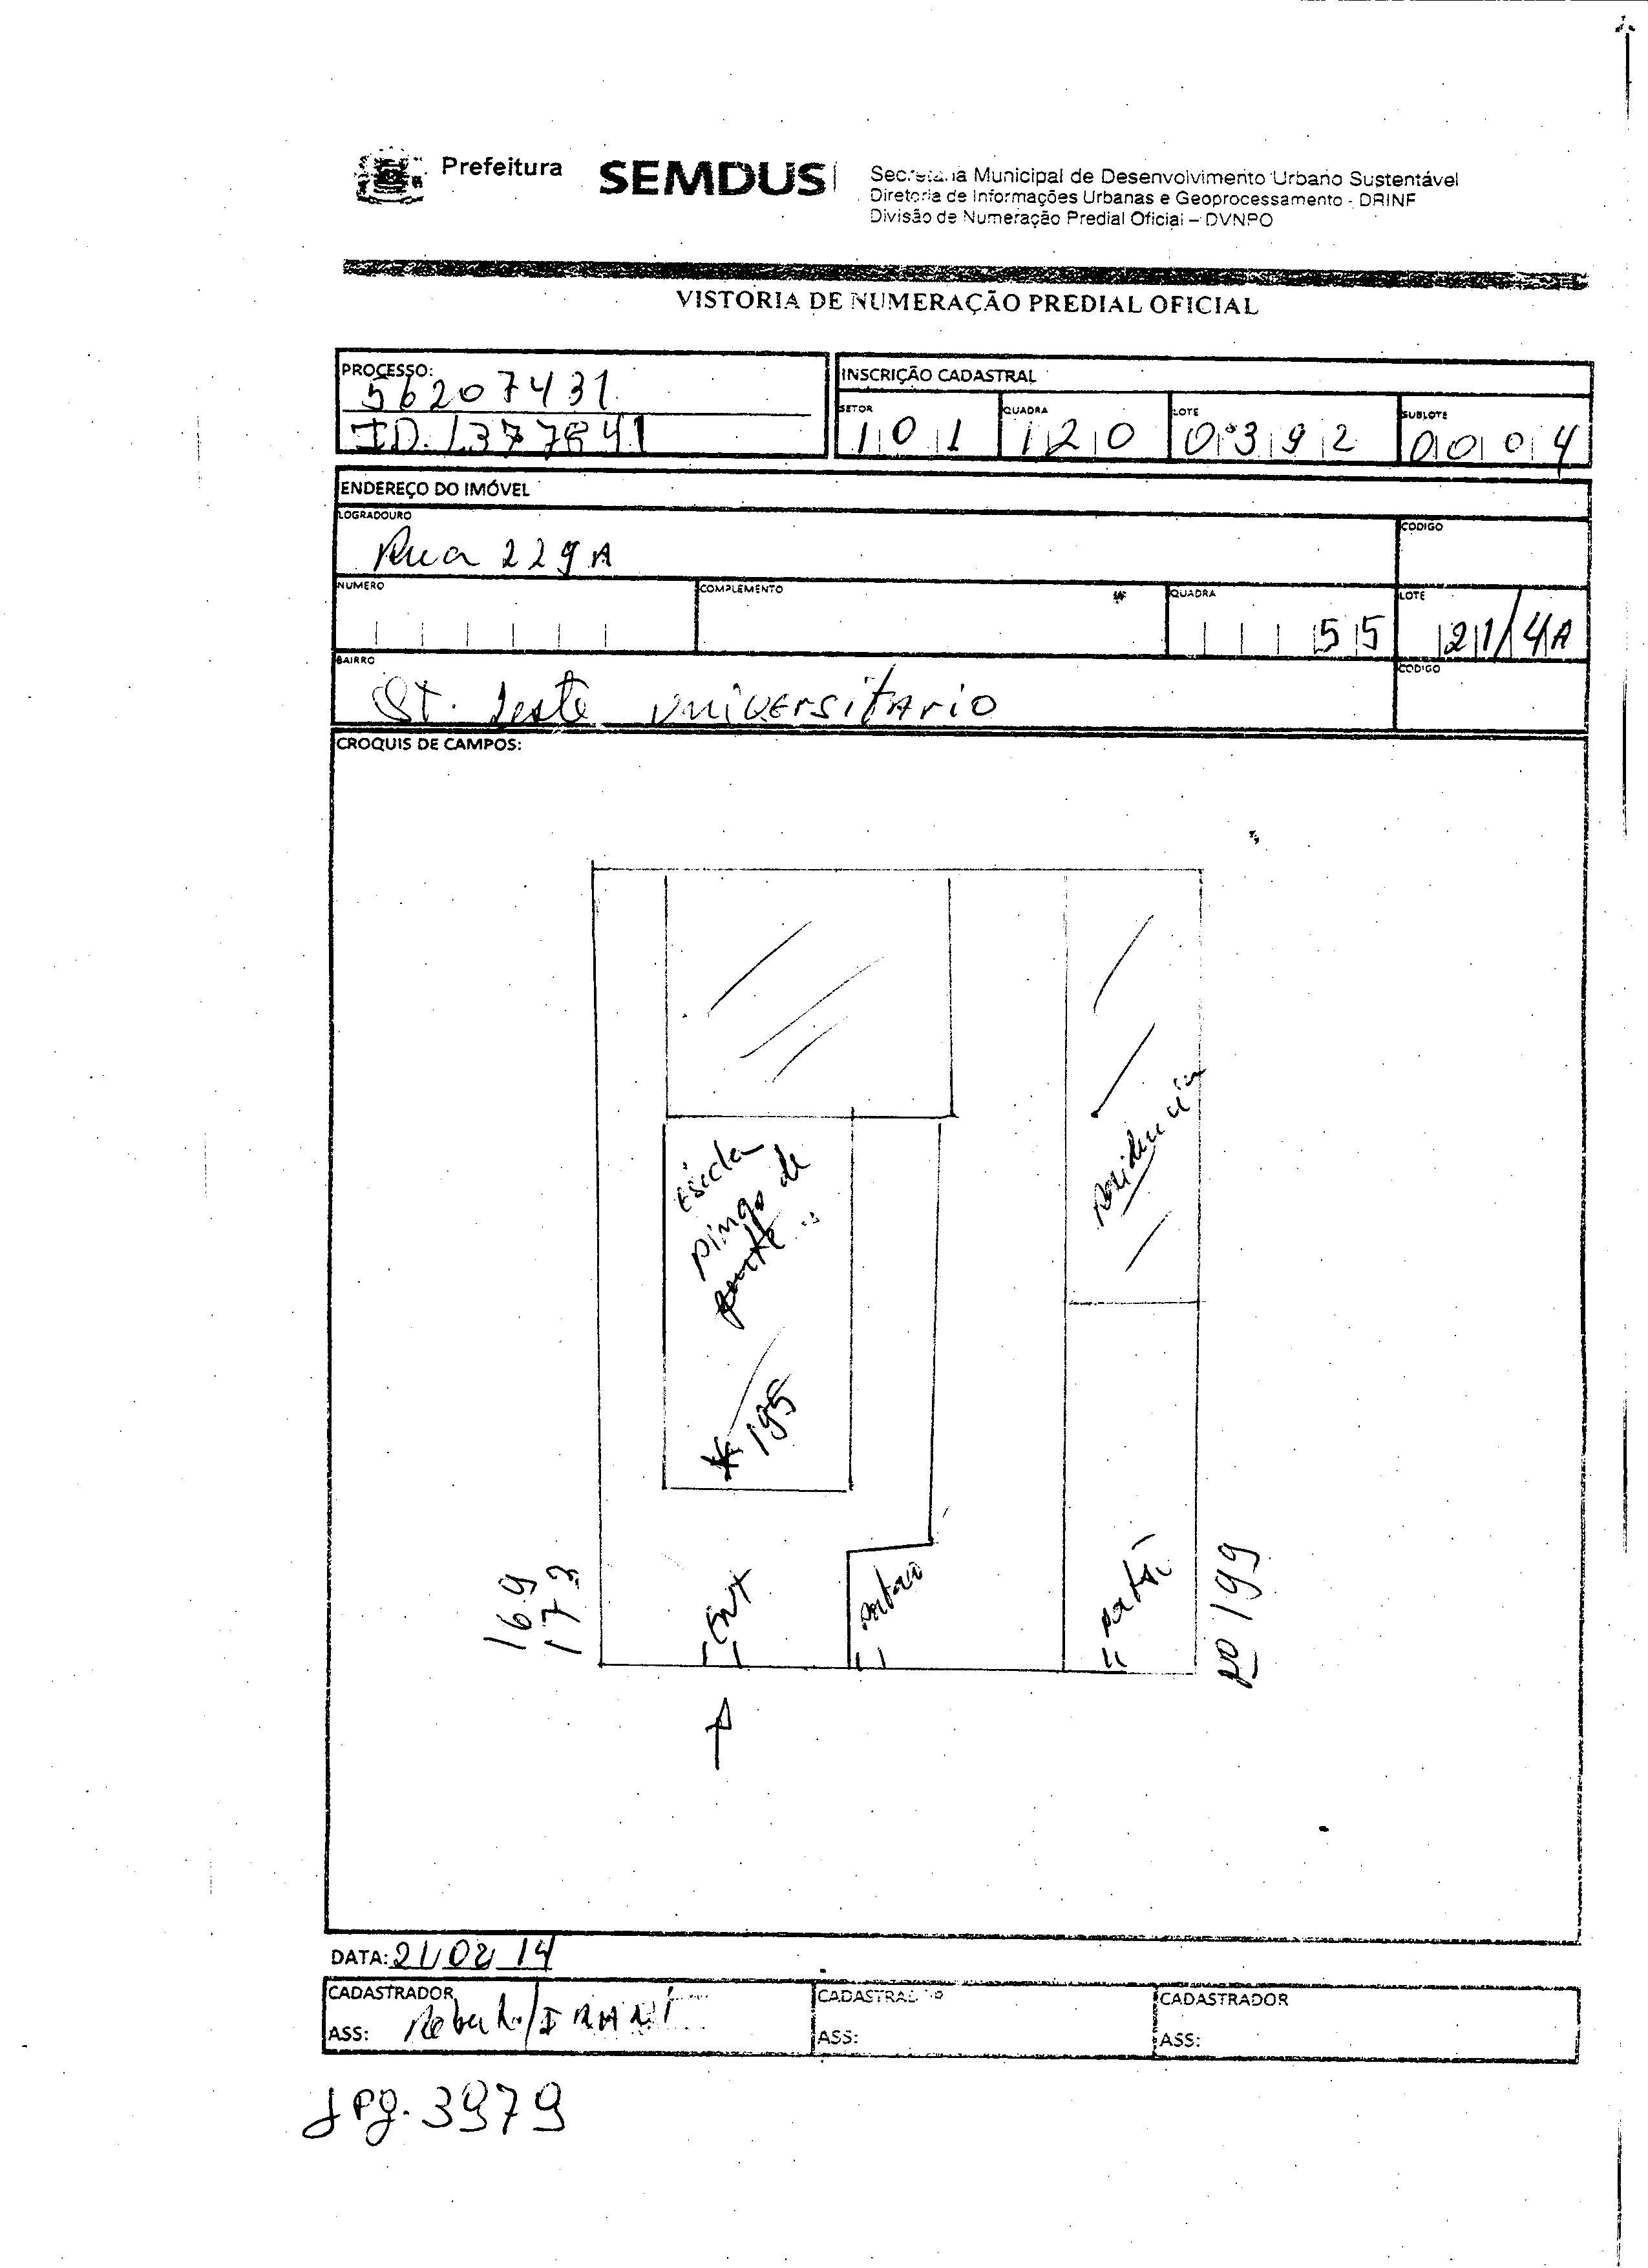 Prefeitura SEMDUS
Secretaria Municipal de Desenvolvimento Urbano Sustentável
Diretoria de Informações Urbanas e Geoprocessamento - DRINF
Divisão de Numeração Predial Oficial – DVNPO
VISTORIA DE NUMERAÇÃO PREDIAL OFICIAL
PROCESSO:
56207431
ID. 1377841
INSCRIÇÃO CADASTRAL
SETOR QUADRA LOTE SUBLOTE
101 120 0392 0004
ENDEREÇO DO IMÓVEL
LOGRADOURO CODIGO
Rua 229A
NUMERO COMPLEMENTO QUADRA LOTE
55 21/4A
BAIRRO CODIGO
St. Leste UNIVERSITARIO
CROQUIS DE CAMPOS:
pingo de
residencia
195
169
173
ENT
portão
199
DATA: 21/02/14
CADASTRADOR CADASTRADOR CADASTRADOR
ASS: ASS: ASS:
jpg. 3979